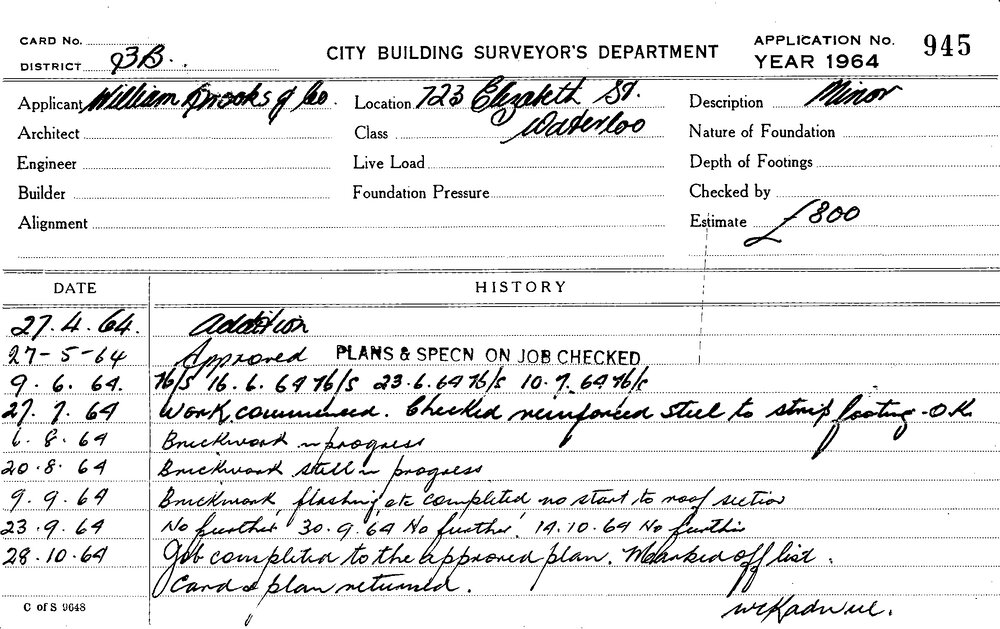 CARD No.
DISTRICT 93B.
CITY BUILDING SURVEYOR'S DEPARTMENT
APPLICATION No. 945
YEAR 1964
Applicant William Brooks & Co.
Location 723 Elizabeth St.
Waterloo
Description Minor
Architect
Class
Nature of Foundation
Engineer
Live Load
Depth of Footings
Builder
Foundation Pressure
Checked by
Alignment
Estimate £800
DATE
HISTORY
27.4.64. Addition
27-5-64 Approved PLANS & SPECN ON JOB CHECKED
9.6.64. N/S 16.6.64 N/S 23.6.64 N/S 10.7.64 N/S
27.7.64 Work commenced. Checked reinforced steel to strip footing - O.K.
6.8.64 Brickwork in progress
20.8.64 Brickwork still in progress
9.9.64 Brickwork, flashing etc completed, no start to roof section
23.9.64 No further 30.9.64 No further. 14.10.64 No further
28.10.64 Job completed to the approved plan. Marked off list.
Card & plan returned.
C of S 9648